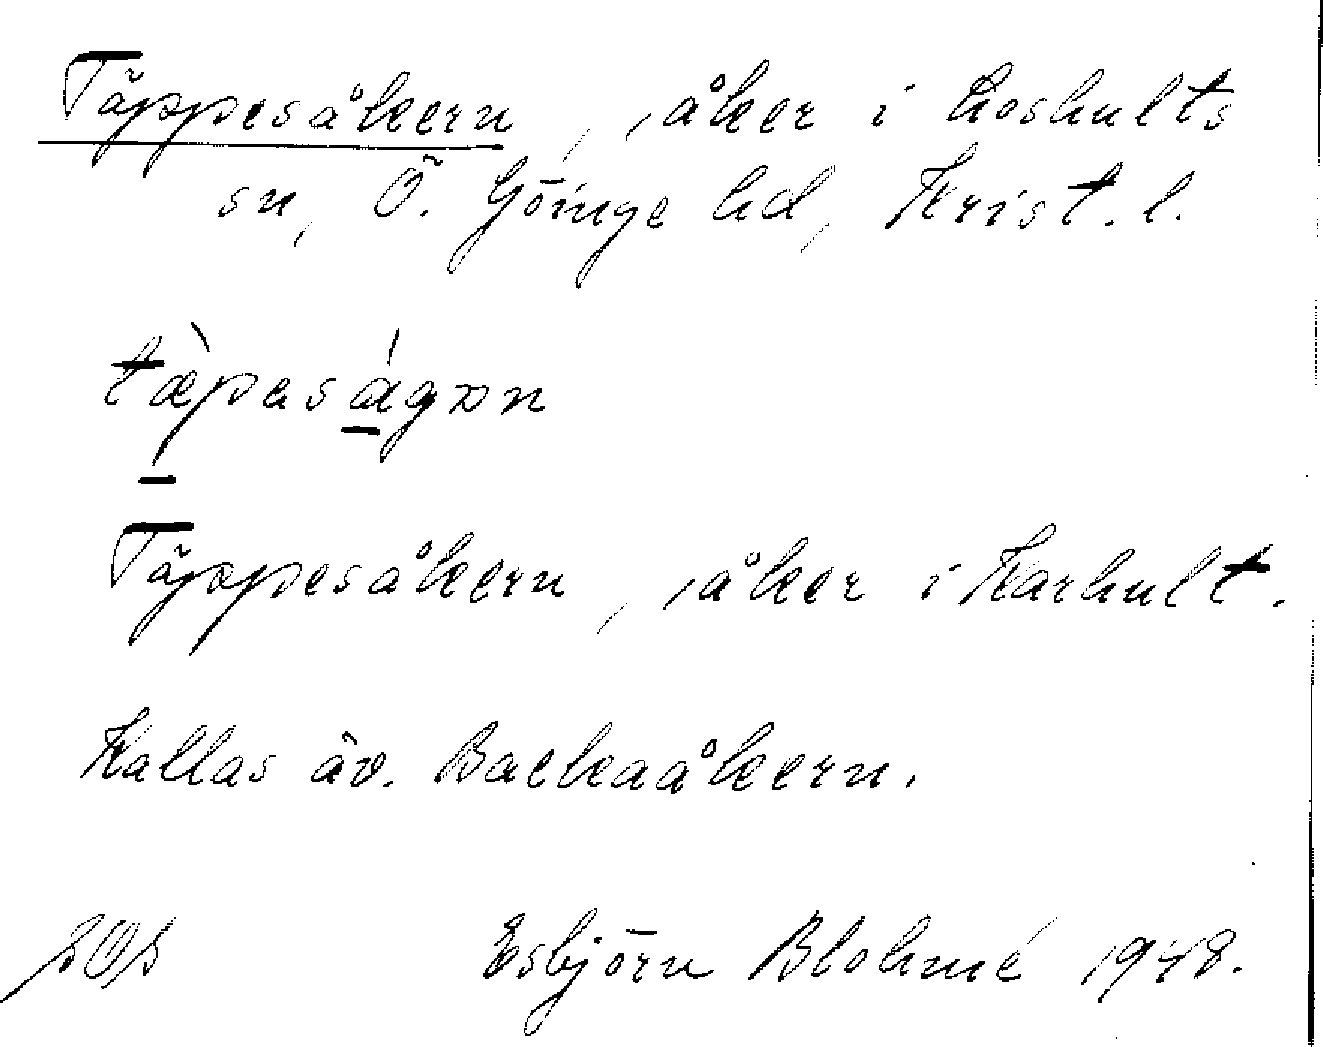 Täppesåkern, åker i Loshults
sn, Ö. Göinge hd, Krist. l.
tæ̀paságɒn
Täppesåkern, åker i Karhult.
Kallas äv. Backaåkern.
Esbjörn Blohmé 1948.